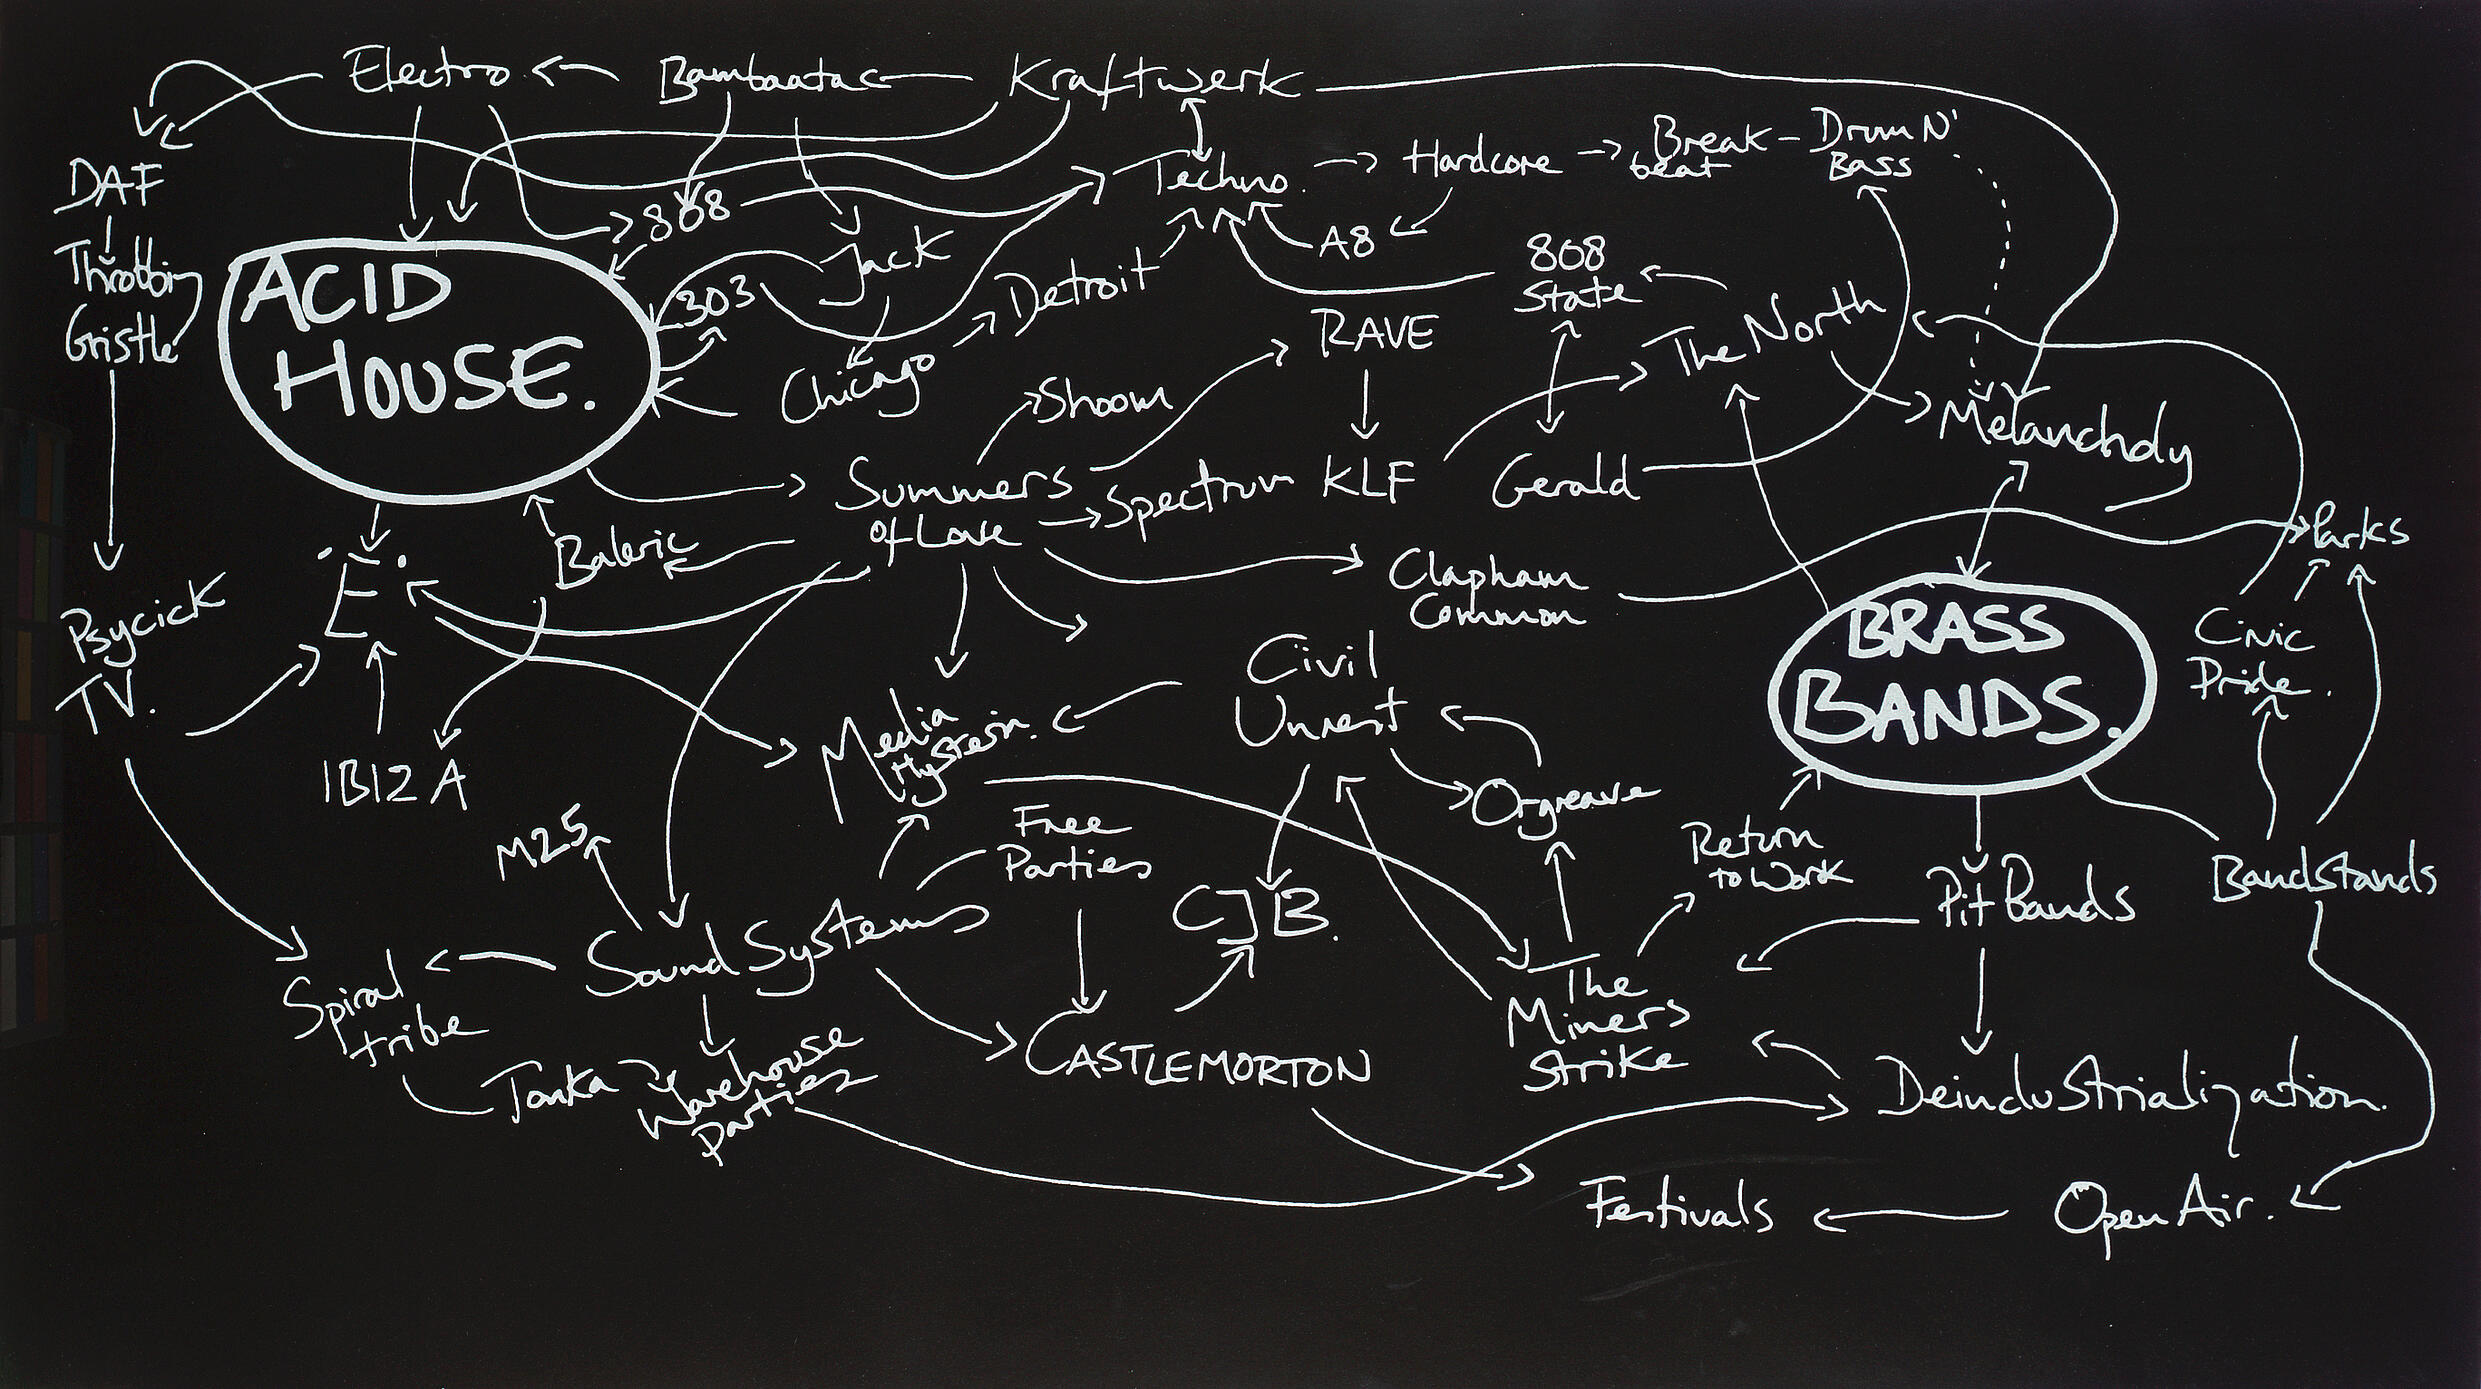 Electro
Bambaataa
Kraftwerk
DAF
Throbbing
Gristle
Techno.
Hardcore
Break
beat
Drum N'
Bass
808
Jack
A8
808
State
ACID
HOUSE.
303
Detroit
RAVE
The North
Chicago
Shoom
Melancholy
Summers
of Love
Spectrum
KLF
Gerald
Parks
Baleric
'E'
Clapham
Common
BRASS
BANDS.
Civic
Pride.
Psycick
TV.
Civil
Unrest
Media
Hysteria.
IBIZA
Orgreave
M25
Free
Parties
Return
to Work
Pit Bands
Bandstands
CJB.
Sound Systems
Spiral
tribe
The
Miners
Strike
Tonka
Warehouse
Parties
CASTLEMORTON
Deindustrialization.
Festivals
Open Air.